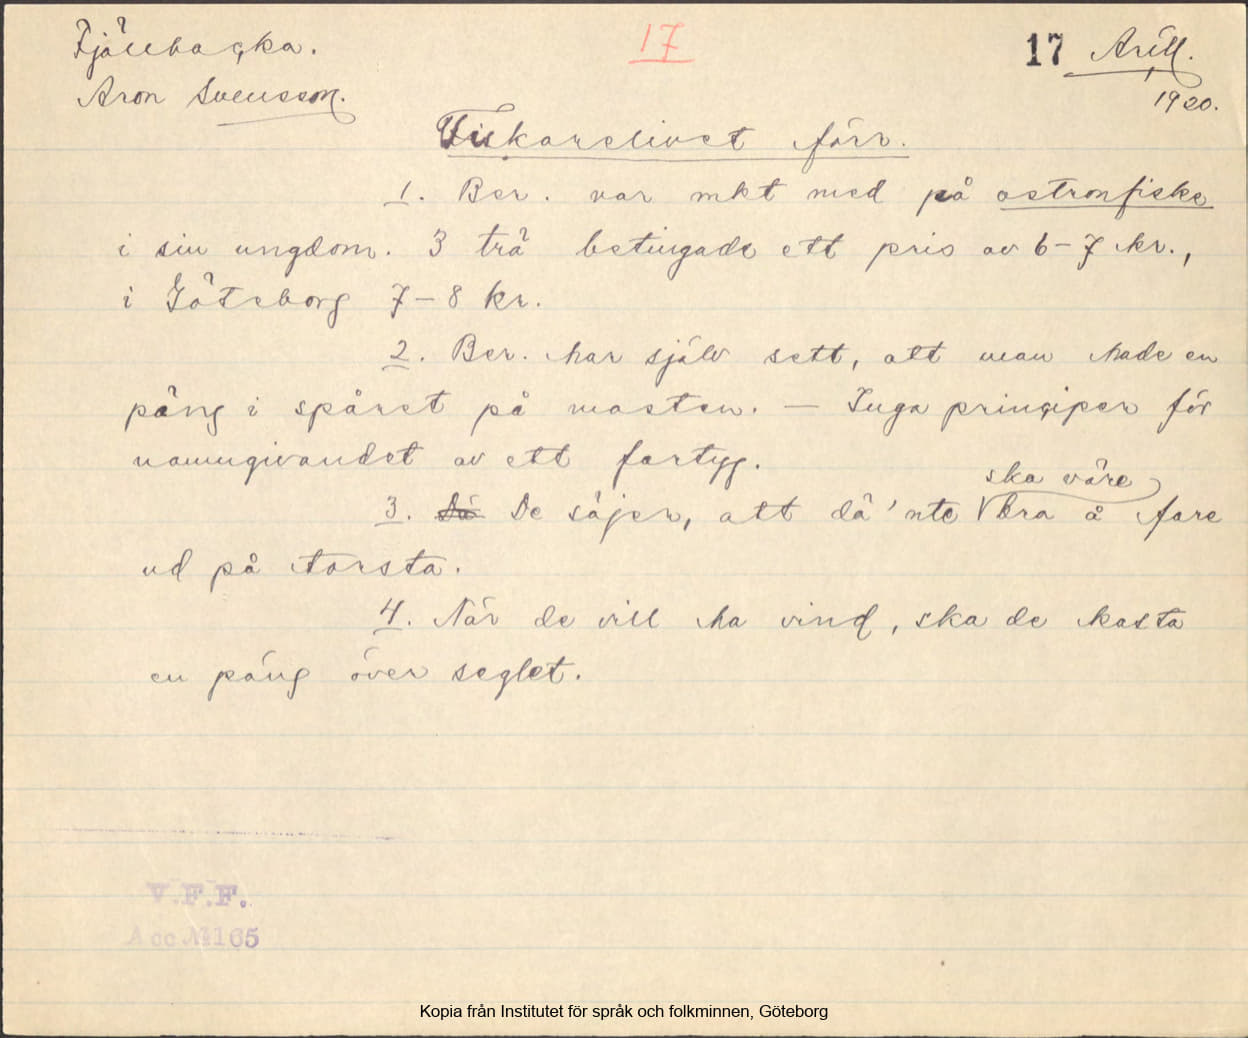 Fjällbacka. 17 17 Arill.
Aron Svensson. 1920.
Fiskarelivet förr.
1. Ber. var mkt med på ostronfiske
i sin ungdom. 3 trä betingade ett pris av 6-7 kr.,
i Göteborg 7-8 kr.
2. Ber. har själv sett, att man hade en
päng i spåret på masten. — Inga principer för
namngivandet av ett fartyg.
ska väre
3. Dä De säjer, att dä 'nte bra å fare
ud på torsta.
4. När de vill ha vind, ska de kasta
en päng över seglet.
V.F.F.
Acc №165
Kopia från Institutet för språk och folkminnen, Göteborg